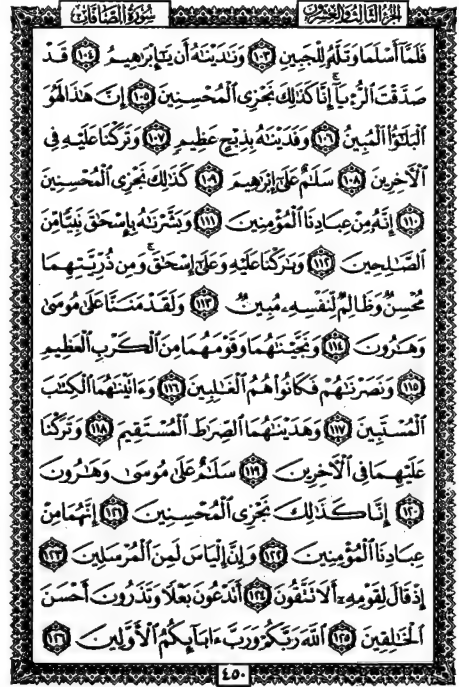 سُورَةُ الصَّافَّاتِ الجُزْءُ الثَّالِثُ وَالعِشْرُونَ
فَلَمَّآ أَسْلَمَا وَتَلَّهُۥ لِلْجَبِينِ ١٠٣ وَنَٰدَيْنَٰهُ أَن يَٰٓإِبْرَٰهِيمُ ١٠٤ قَدْ
صَدَّقْتَ ٱلرُّءْيَآ ۚ إِنَّا كَذَٰلِكَ نَجْزِى ٱلْمُحْسِنِينَ ١٠٥ إِنَّ هَٰذَا لَهُوَ
ٱلْبَلَٰٓؤُا۟ ٱلْمُبِينُ ١٠٦ وَفَدَيْنَٰهُ بِذِبْحٍ عَظِيمٍ ١٠٧ وَتَرَكْنَا عَلَيْهِ فِى
ٱلْأَخِرِينَ ١٠٨ سَلَٰمٌ عَلَىٰٓ إِبْرَٰهِيمَ ١٠٩ كَذَٰلِكَ نَجْزِى ٱلْمُحْسِنِينَ
١١٠ إِنَّهُۥ مِنْ عِبَادِنَا ٱلْمُؤْمِنِينَ ١١١ وَبَشَّرْنَٰهُ بِإِسْحَٰقَ نَبِيًّا مِّنَ
ٱلصَّٰلِحِينَ ١١٢ وَبَٰرَكْنَا عَلَيْهِ وَعَلَىٰٓ إِسْحَٰقَ ۚ وَمِن ذُرِّيَّتِهِمَا
مُحْسِنٌ وَظَالِمٌ لِّنَفْسِهِۦ مُبِينٌ ١١٣ وَلَقَدْ مَنَنَّا عَلَىٰ مُوسَىٰ
وَهَٰرُونَ ١١٤ وَنَجَّيْنَٰهُمَا وَقَوْمَهُمَا مِنَ ٱلْكَرْبِ ٱلْعَظِيمِ
١١٥ وَنَصَرْنَٰهُمْ فَكَانُوا۟ هُمُ ٱلْغَٰلِبِينَ ١١٦ وَءَاتَيْنَٰهُمَا ٱلْكِتَٰبَ
ٱلْمُسْتَبِينَ ١١٧ وَهَدَيْنَٰهُمَا ٱلصِّرَٰطَ ٱلْمُسْتَقِيمَ ١١٨ وَتَرَكْنَا
عَلَيْهِمَا فِى ٱلْأَخِرِينَ ١١٩ سَلَٰمٌ عَلَىٰ مُوسَىٰ وَهَٰرُونَ
١٢٠ إِنَّا كَذَٰلِكَ نَجْزِى ٱلْمُحْسِنِينَ ١٢١ إِنَّهُمَا مِنْ
عِبَادِنَا ٱلْمُؤْمِنِينَ ١٢٢ وَإِنَّ إِلْيَاسَ لَمِنَ ٱلْمُرْسَلِينَ ١٢٣
إِذْ قَالَ لِقَوْمِهِۦٓ أَلَا تَتَّقُونَ ١٢٤ أَتَدْعُونَ بَعْلًا وَتَذَرُونَ أَحْسَنَ
ٱلْخَٰلِقِينَ ١٢٥ ٱللَّهَ رَبَّكُمْ وَرَبَّ ءَابَآئِكُمُ ٱلْأَوَّلِينَ ١٢٦
٤٥٠